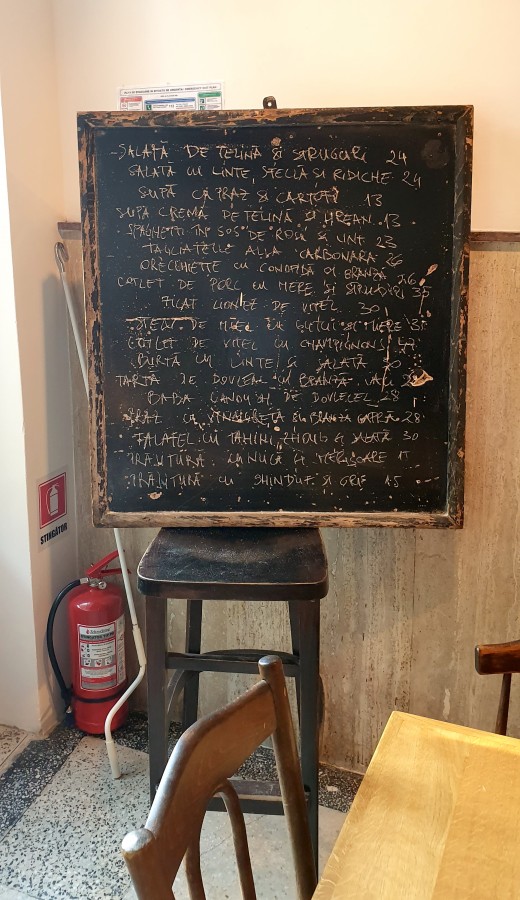 SALATĂ DE ȚELINĂ ȘI STRUGURI 24
SALATĂ CU LINTE, SFECLĂ ȘI RIDICHE 24
SUPĂ CU PRAZ ȘI CARTOFI 13
SUPĂ CREMĂ DE ȚELINĂ ȘI HREAN 13
SPAGHETTI ÎN SOS DE ROȘII ȘI UNT 23
TAGLIATELLE ALLA CARBONARA 26
ORECCHIETTE CU CONOPIDĂ ȘI BRANZĂ 26
COTLET DE PORC CU MERE ȘI STRUGURI 35
FICAT LIONEZ DE VIȚEL 30
DE MIEL CU ȘI MERE
COTLET DE VIȚEL CU CHAMPIGNONS
BURTĂ CU LINTE ȘI SALATĂ
TARTĂ DE DOVLEAC CU BRANZĂ
BABA GANOUSH DE DOVLECEL 28
PRAZ CU VINAIGRETĂ CU BRANZĂ CAPRĂ 28
FALAFEL CU TAHINI, ȘI SALATĂ 30
PRĂJITURĂ CU NUCĂ ȘI MERIȘOARE
PRĂJITURĂ CU GHINDUF ȘI GRIȘ 15
STINGĂTOR